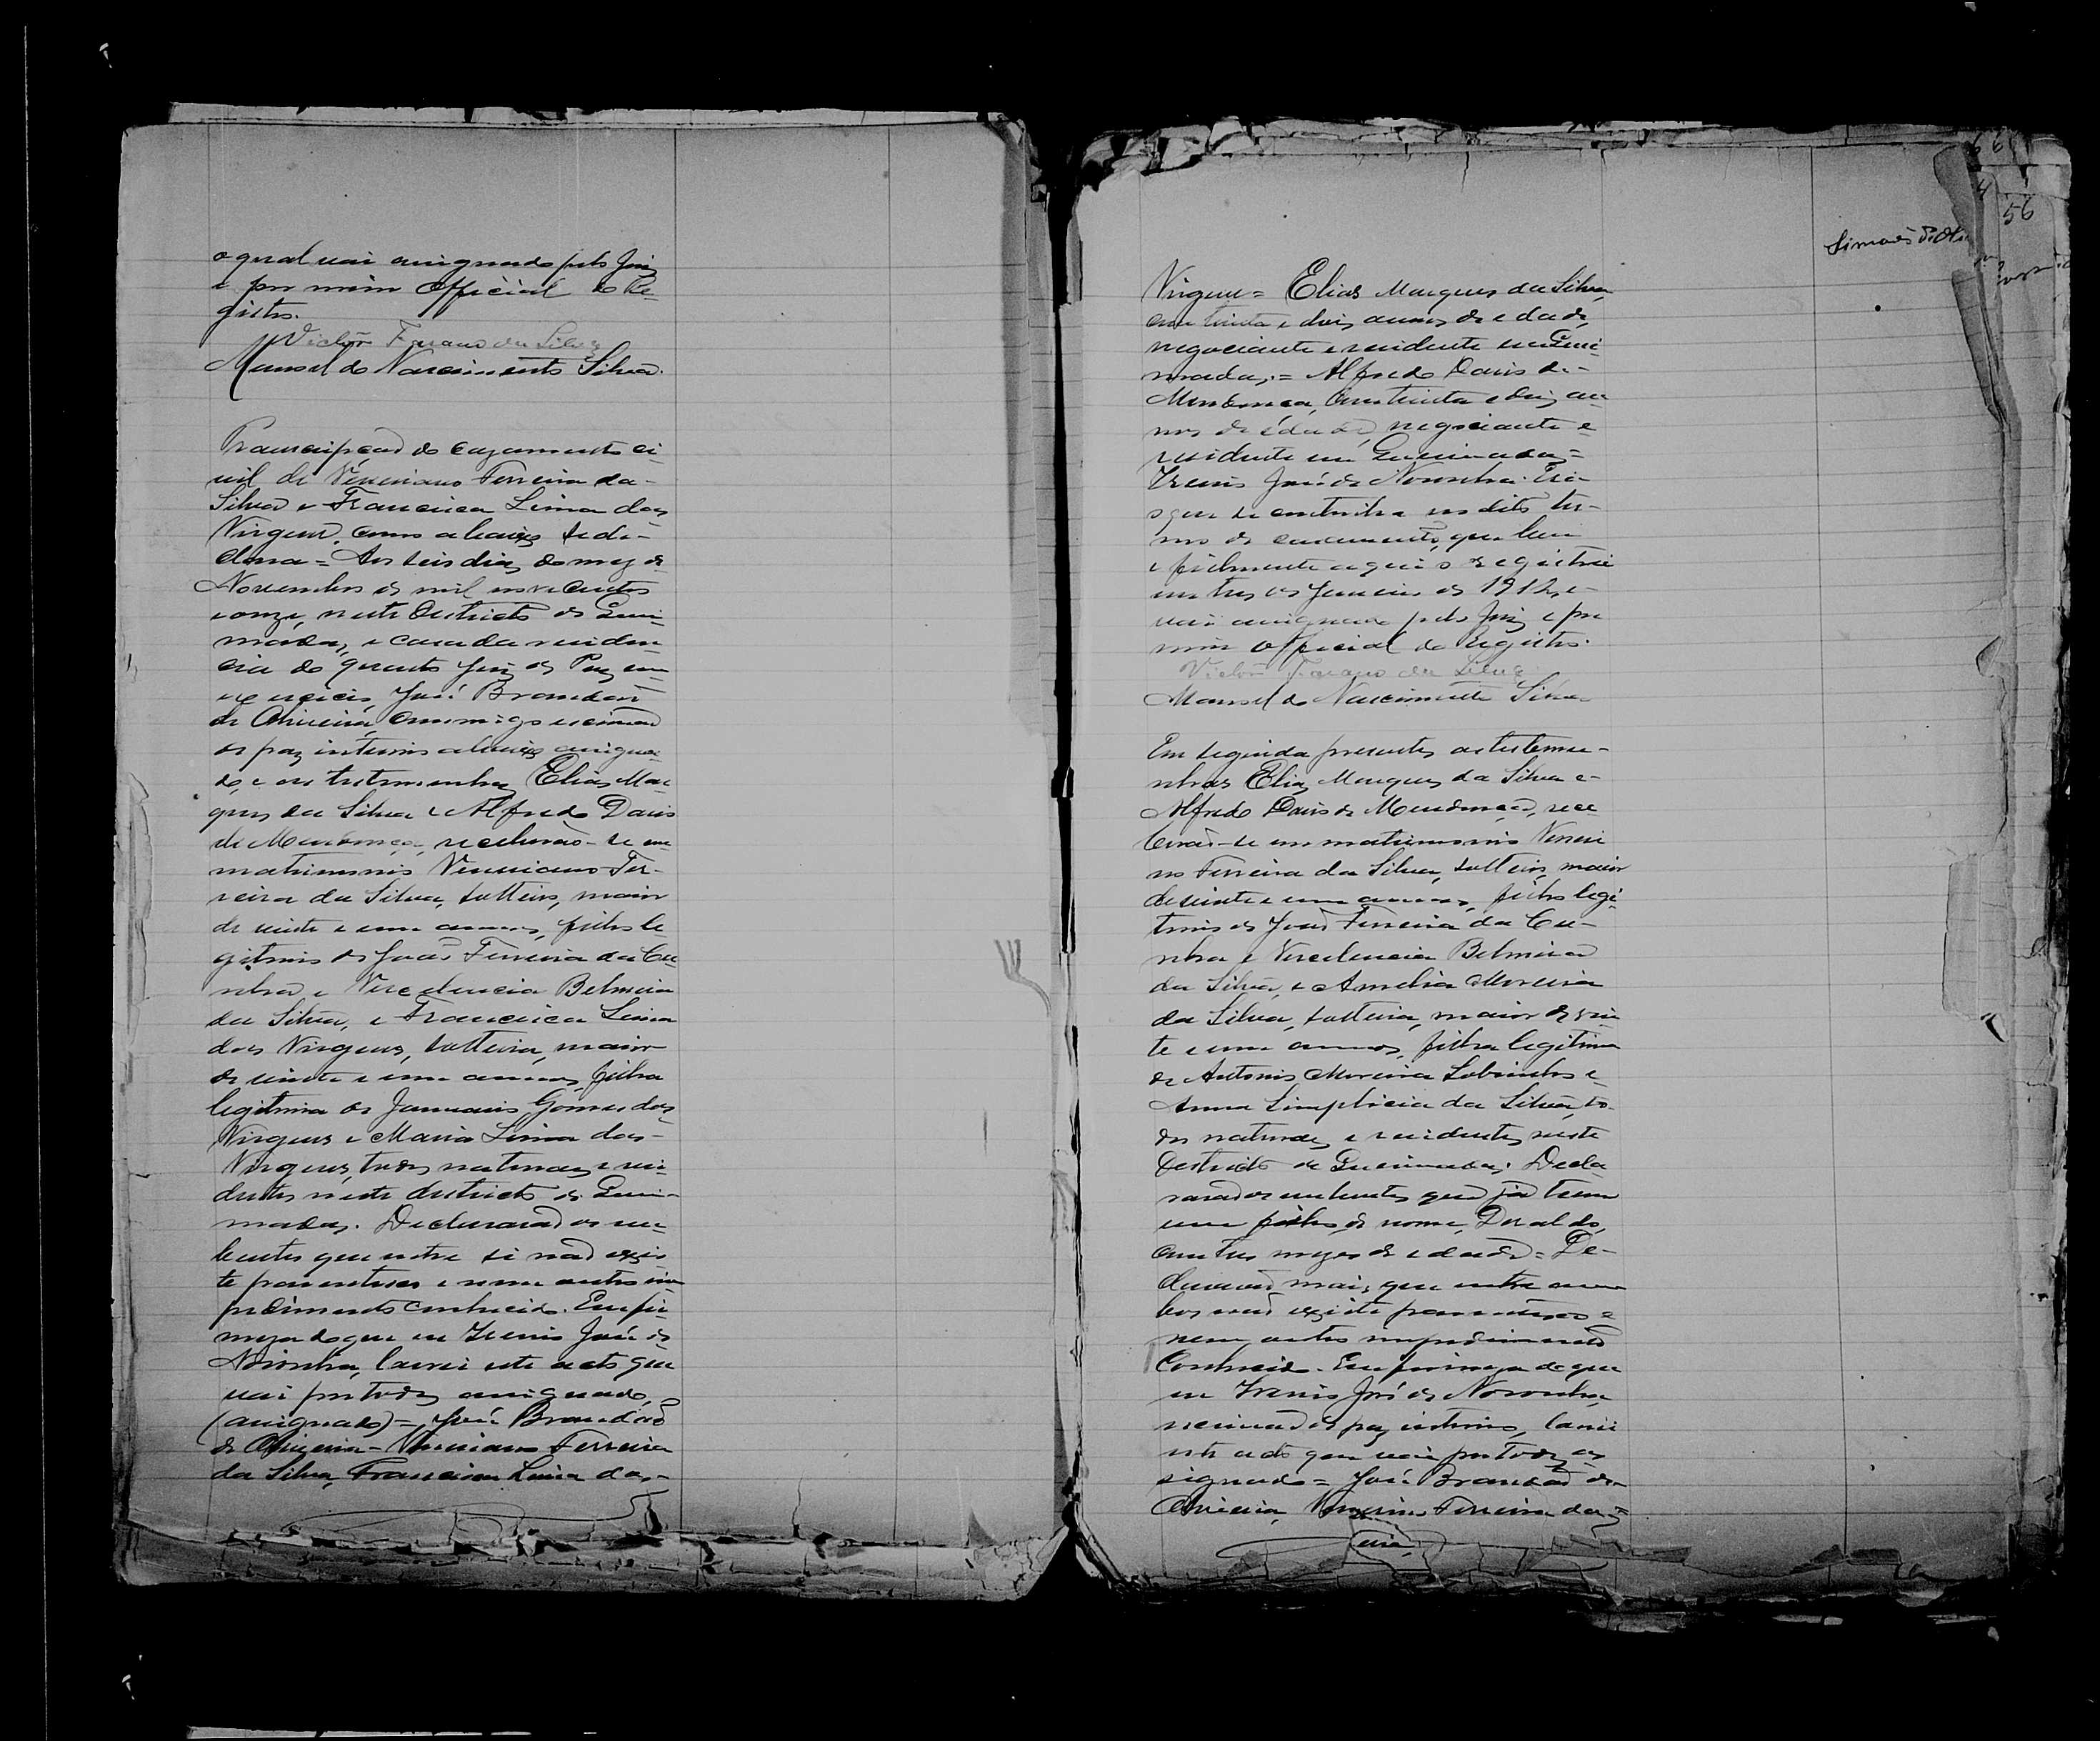 o qual vai assignado pelo Juiz
e por mim Official do Re-
gistro.
Victor Fr da Silva
Manoel do Nascimento Silva.
Transcripção do cazamento ci-
vil de Veneriano Ferreira da-
Silva e Francisca Lima das
Virgens, como abaixo se de-
clara = Aos seis dias do mez de
Novembro de mil novecentos
e onze, neste Districto de Quei-
madas, e casa da residen-
cia do Juiz de Paz em
exercicio, José Brandão
de Oliveira, commigo escrivão
de paz interino abaixo assigna-
do, e as testemunhas Elias Mar-
ques da Silva e Alfredo Davis
de Mendonça, receberão-se em
matrimonio Veneriano Fer-
reira da Silva, solteiro, maior
de vinte e um annos, filho le-
gitimo de João Ferreira da Cu-
nha e Vercelencia Belmira
da Silva, e Francisca Lima
das Virgens, solteira, maior
de vinte e um annos, filha
legitima de Januario Gomes das
Virgens e Maria Lima das-
Virgens, todos naturaes e resi-
dentes neste districto de Quei-
madas. Declararão os nu-
bentes que entre si não exis-
te parentesco e nem outro im-
pedimento conhecido. Em fir-
meza do que eu Irenio José de
Noronha, lavrei este acto que
vai por todos assignado,
(assignado) = José Brandão
de Oliveira - Veneriano Ferreira
da Silva, Francisca Lima das-
56
Simões
Virgens = Elias Marques da Silva,
com trinta e dois annos de edade,
negociante e residente em Quei-
madas. = Alfredo Davis de-
Mendonça, com trinta e dois an-
nos de edade, negociante e
residente em Queimadas =
Irenio José de Noronha. Era
o que se continha no dito ter-
mo de casamento, que bem
e fielmente aqui o registrei
em tres de Janeiro de 1912, e-
vai assignado pelo Juiz e por
mim Official do Registro.
Victor Fr da Silva
Manoel do Nascimento Silva
Em seguida presentes as testemu-
nhas Elias Marques da Silva e-
Alfredo Davis de Mendonça, rece-
berão-se em matrimonio Veneri
no Ferreira da Silva, solteiro, maior
de vinte e um annos, filho legi-
timo de João Ferreira da Cu-
nha e Vercelencia Belmira
da Silva, e Amelia Moreira
da Silva, solteira, maior de vin-
te e um annos, filha legitima
de Antonio Moreira Sobrinho e
Anna Simplicia da Silva, to-
dos naturaes e residentes neste
Districto de Queimadas. Decla
rarão os nubentes que já teem
um filho de nome, Deraldo,
com tres mezes de edade = De-
clararão mais que entre am-
bos não existe parentesco e
nem outro impedimento
Conhecido. Em firmeza do que
eu Irenio José de Noronha,
escrivão de paz interino, lavrei
este acto que vai por todos as
signado = José Brandão de-
Oliveira, Ferreira da